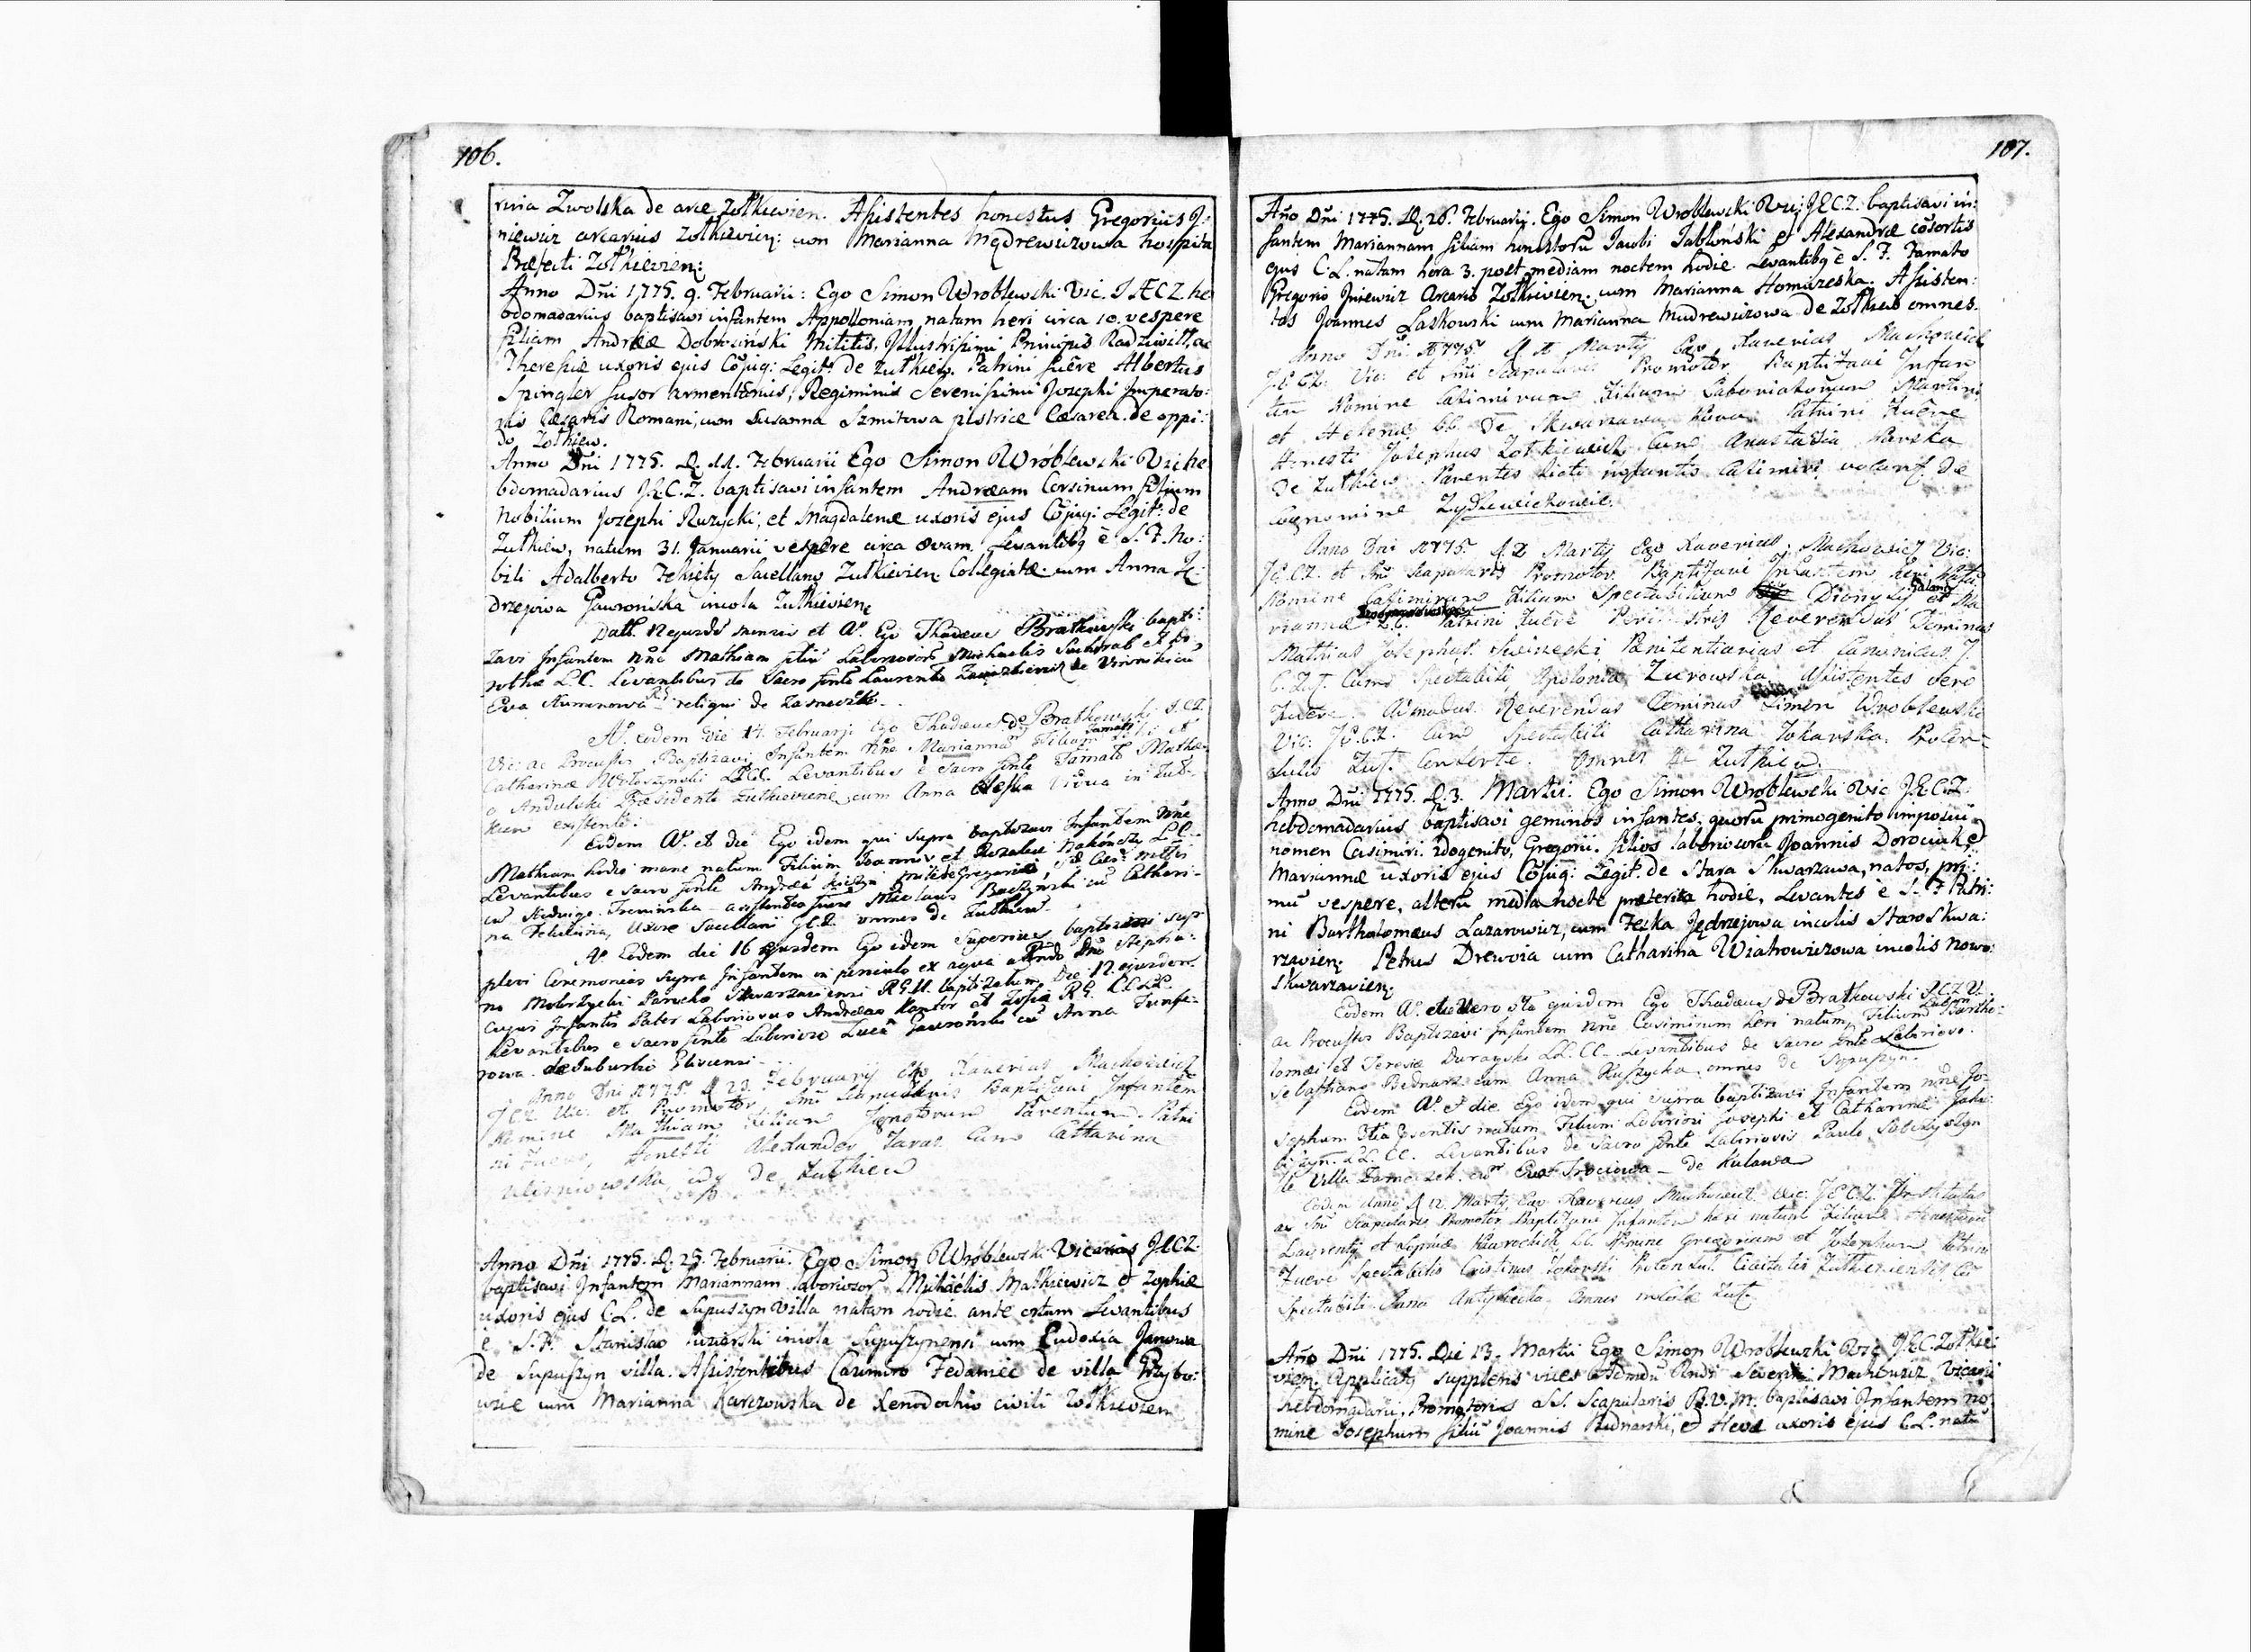 106.
rina Zwolska de arce Zołkievien. Assistentes honestus Gregorius J:
niewicz arcarius Zołkievien: cum Marianna Mędrewiczowa hospita
Præfecti Zołkievien:
Anno Dñi 1775. 9. Februarii: Ego Simon Wroblewski Vic. I ÆCZ. he
bdomadarius baptisavi infantem Appolloniam natam heri circa 10. vespere
filiam Andreæ Dobrosiński Militis, Illustrissimi Principis Radziwiłł, ac
Theresiæ uxoris ejus Cõjug: Legit: de Zułkiew. Patrini fuêre Albertus
Spingler fusor armentarius, Regiminis Serenissimi Josephi Imperato:
ris Cæsaris Romani, cum Susanna Szmitowa pistrice Cæsarea de oppi:
do Zołkiew.
Anno Dñi 1775. D. 11. Februarii Ego Simon Wróblewski Vic he
bdomadarius J.E.C.Z. baptisavi infantem Andream Corsinum filium
Nobilium Josephi Ruzycki, et Magdalenæ uxoris ejus Cõjug: Legit: de
Zułkiew, natum 31. Januarii vespere circa 8vam. Levantibq è S. F. No:
bili Adalberto Sacellano Zułkievien Collegiatæ cum Anna Ję
drzejowa Gawrońska incola Zułkievien
Datt. ejusdẽ mensis et Aº. Ego Thadæus Bratkowski bapti:
zavi Infantem nñe Mathiam filiũ Laboriosor̃ Michaelis et Do
rothæ L.C. Levantibus de Sacro fonte Laurentio de cũ
Eva reliqui de Zameczek.
Aº. eodem die 14 Februarji Ego Thadæus de Bratkowski J.C.Z.
Vic: ac Procustos Baptizavi Infantem nñe Mariannam Filiam Jamati et
Catherinæ LL.CC. Levantibus è Sacro fonte Famato Mathæ
o Andulski Præsidente Zułkieviene cum Anna vidua in Zuł
kiew existente.
Eodem Aº. et die Ego idem qui supra baptizavi Infantem nñe
Mathiam hodie mane natum Filium Joannis et Rozaliæ L.C.
Levantibus e sacro fonte Andrea milite Gregoriei,
cũ Hedvige assistentes fuere Nicolaus cũ Catheri
na uxore Sacellani J.C.Z. omnes de Zułkiew.
Aº. Eodem die 16 ejusdem Ego idem Superius baptizavi sup
plevi Ceremonias supra Infantem in periculo ex aqua a Rndo Dno Stepha
no Parocho R.G.U. baptizatum Die 12. ejusdem
cujus Infantis Pater Laboriosus Andreas Kantor et Zofia R.G. CC.LL.
Levantibus e sacro fonte Laborioso Luca Gawroński cũ Anna
rowa de Suburbio Glinensi
Anno Dni 1775. D 23 Februarij Ego Xaverius Machowicz
J.C.Z. Vic: et Promotor Smi Scapularis Baptizavi Infantem
Nomine Mathiam Filium Ignotorum Parentum. Patri
ni Fuêre, Honesti Alexander Cum Catharina
Wisniowska de Zułkiew
Anno Dñi 1775. D. 25. Februarii. Ego Simon Wróblewski Vicarius J.E.C.Z.
baptisavi Infantem Mariannam laboriosor̃ Michaélis Matkiewicz et Zophiæ
uxoris ejus C.L. de Supuszyn Villa natam hodie ante ortum Levantibus
è S.F. Stanislao incola Supuszynensi cum Eudoxia Janowa
de Supuszyn villa. Assistentibus Casimiro Fedaniec de villa Przybu:
cum Marianna Karczowska de Xenodochio civili Zołkievien
107.
Año Dñi 1775. D. 28. Februarij. Ego Simon Wroblewski Vic: J.E.C.Z. baptisavi in:
fantem Mariannam filiam honestorũ Jacobi Jabłoński et Alexandræ cõsortis
ejus C.L. natam hora 3. post mediam noctem hodie. Levantibq è S. F. Famato
Gregorio Jniewicz Arcario Zołkievien, cum Marianna Assisten:
tes Joannes Laskowski cum Marianna Mudrewiczowa de Zołkiew omnes.
Anno Dni 1775. D 1 Martij Ego Xaverius Machowicz
J.E.C.Z. Vic: et Smi Scapularis Promotor Baptizavi Infan
tem Nomine Casimirum Filium Laboriosorum Martini
et Helenæ de Skwarzawa Nova. Patrini Fuêre
Honesti Josephus Zołkiewicz Cum Anastasia
de Zułkiew. Parentes dicti infantis Casimiri vocant de
Cognomine
Anno Dni 1775. D 2 Martij Ego Xaverius Machowicz Vic:
J.E.C.Z. et Smi Scapularis Promotor Baptizavi Infantem heri
Nomine Casimirum Filium Spectabilium Dionysij Galany et Ma
riannæ L.C. Patrini Fuêre Reverendus Dominus
Mathias Josephus Pœnitentiarius et Canonicus J
C. Zuł. Cum Spectabili Apolonia Zurowska. Assistentes vero
Fuêre. Admodus Reverendus Dominus Simon Wroblewski
Vic: J.E.C.Z. Cum Spectabili Catharina Tokarska. Procon
sulis Zuł. Consorte. Omnes de Zułkiew.
Anno Dñi 1775. D. 3. Martii. Ego Simon Wroblewski Vic J.E.C.Z.
hebdomadarius baptisavi geminos infantes, quorũ primogenito imposui
nomen Casimiri. 2dogenito, Gregorii. filios laboriosorũ Joannis Dorociak, et
Mariannæ uxoris ejus Cõjug: Legit: de Stara Skwarzawa, natos, pri:
mũ vespere, alterũ media nocte præterita hodie, Levantes è S. F Patri:
ni Bartholomæus Lazarowicz, cum Feska Jędrzejowa incolis Staroskwa:
rzavien: Petrus Drewvia cum Catharina Wiatrowiczowa incolis novo:
Skwarzavien:
Eodem Aº. die vero 5ta ejusdem Ego Thadæus de Bratkowski J.C.Z. V.
ac Procustos Baptizavi Infantem nñe Casimirum heri natum, Filium Bartho:
lomæi et Teresiæ LL.CC. Levantibus de Sacro fonte Laborioso.
Sebasthiano Bednarz cum Anna omnes de Sopuszyn.
Eodem Aº. et die Ego idem qui supra baptizavi Infantem nñe Jo
sephum natum Filium Laboriosi Josephi et Catharinæ
LL.CC. Levantibus de Sacro fonte Laboriosis Paulo
de Villa Zameczek cum Eva de Kulawa
Eodem Anno D 12. Martij Ego Xaverius Machowicz Vic: J.E.C.Z.
ac Smi Scapularis Promotor Baptizavi Infantem heri natum Filium Honestorum
Laurentij et Sophiæ LL. Nomine Gregorium et Josephum Patrini
Fuêre Spectabilis Procon Zuł. Civitatis Zułkieviensis Cũ
Spectabili Anna Omnes Zuł.
Año Dñi 1775. Die 13. Martii Ego Simon Wroblewski J.E.C. Zołkie
vien. supplens vices Admdũ Rndi Xaverii Machowicz Vicarii
hebdomadarii, Promotoris SS. Scapularis B.V.M. baptisavi Infantem no
mine Josephum filiũ Joannis Bednarski, et Hevæ uxoris ejus C.L. natũ